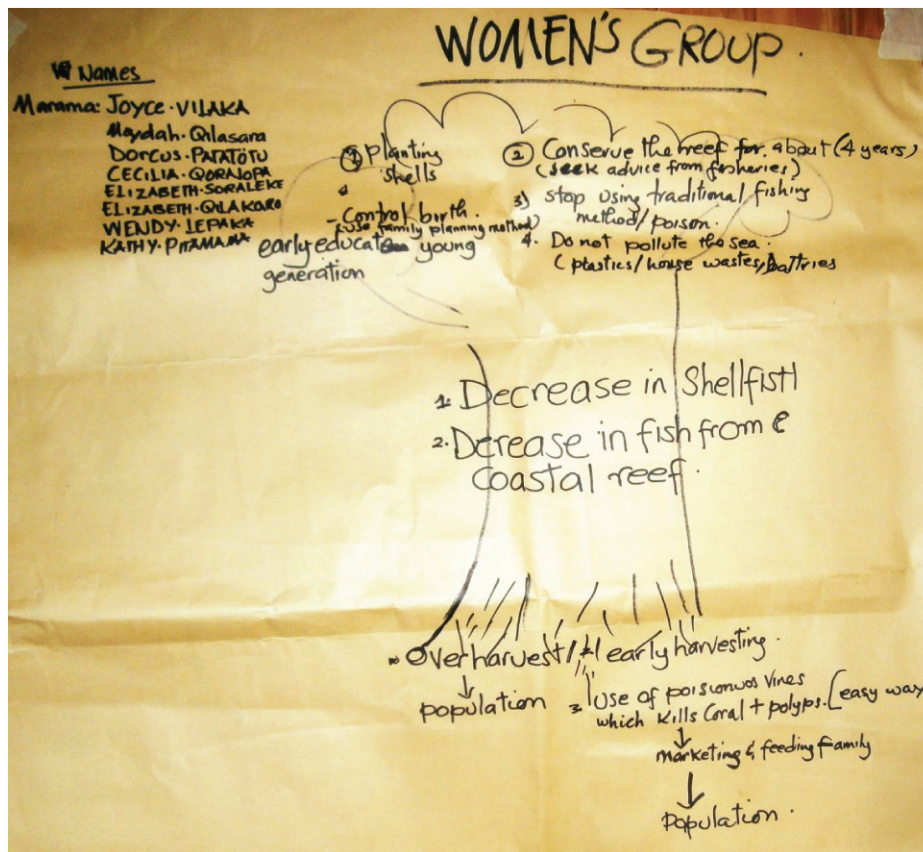 WOMEN'S GROUP.
Names
Marama: Joyce. VILAKA
Qilasara
DORCUS. PATATOTU
CECILIA. QORALOPA
ELIZABETH. SORALEKE
ELIZABETH. QILAKARO
WENDY. LEPAKA
KATHY. PITAMAMA
① planting
shells
- Control birth.
(use family planning method)
early educate young
generation
② Conserve the reef for about (4 years)
(seek advice from fisheries)
3) stop using traditional fishing
method/poison.
4. Do not pollute the sea.
(plastics/house wastes/battries
1. Decrease in Shellfish
2. Derease in fish from
coastal reef.
Over harvest/early harvesting.
↓
population
3. Use of poisionuos Vines
which kills Coral + polyps. [easy way
↓
marketing & feeding family
↓
population.